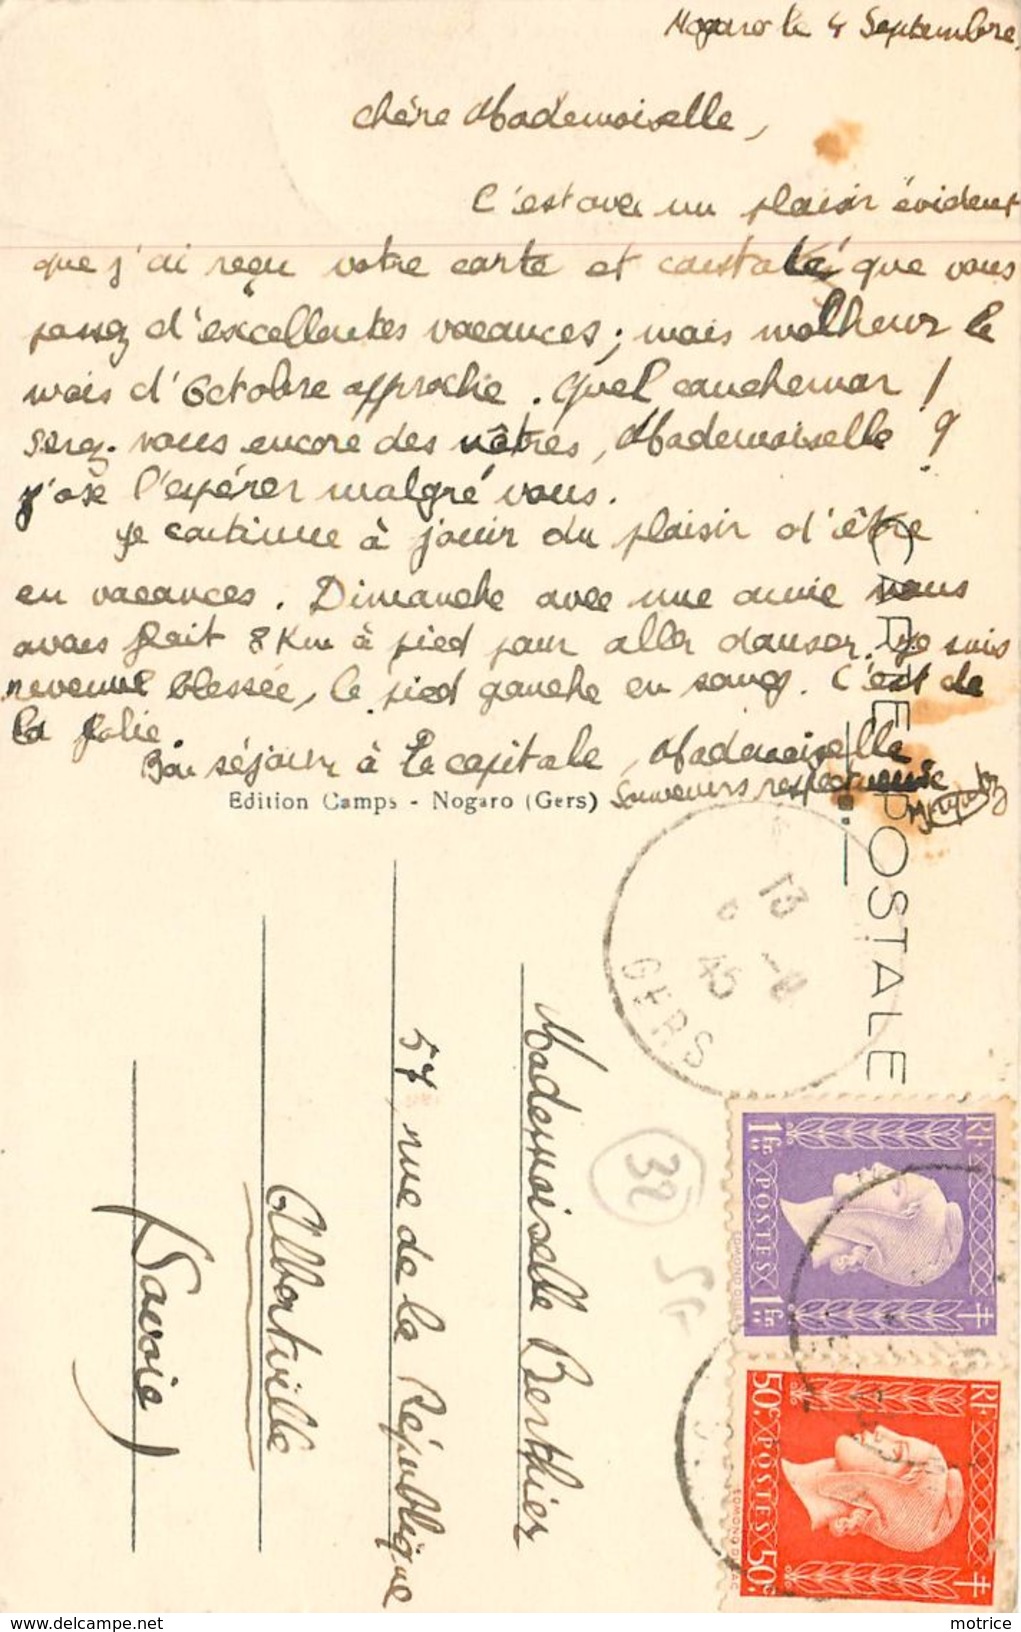 Nogaro le 4 Septembre,
Chère Mademoiselle,
C'est avec un plaisir évident
que j'ai reçu votre carte et constaté que vous
passez d'excellentes vacances ; mais malheur le
mois d'Octobre approche. Quel cauchemar !
Serez-vous encore des nôtres, Mademoiselle ?
J'ose l'espérer malgré vous.
Je continue à jouir du plaisir d'être
en vacances. Dimanche avec une amie nous
avons fait 8 Km à pied pour aller danser. Je suis
revenue blessée, le pied gauche en sang. C'est de
la folie.
Bon séjour à la capitale, Mademoiselle
Souvenirs respectueux
Edition Camps - Nogaro (Gers)
CARTE POSTALE
13
45
GERS
Mademoiselle Berthier
57, rue de la République
Albertville
(Savoie)
32
RF
1fr. POSTES 1fr.
RF
50c. POSTES 50c.
EDMOND DULAC
www.delcampe.net
motrice